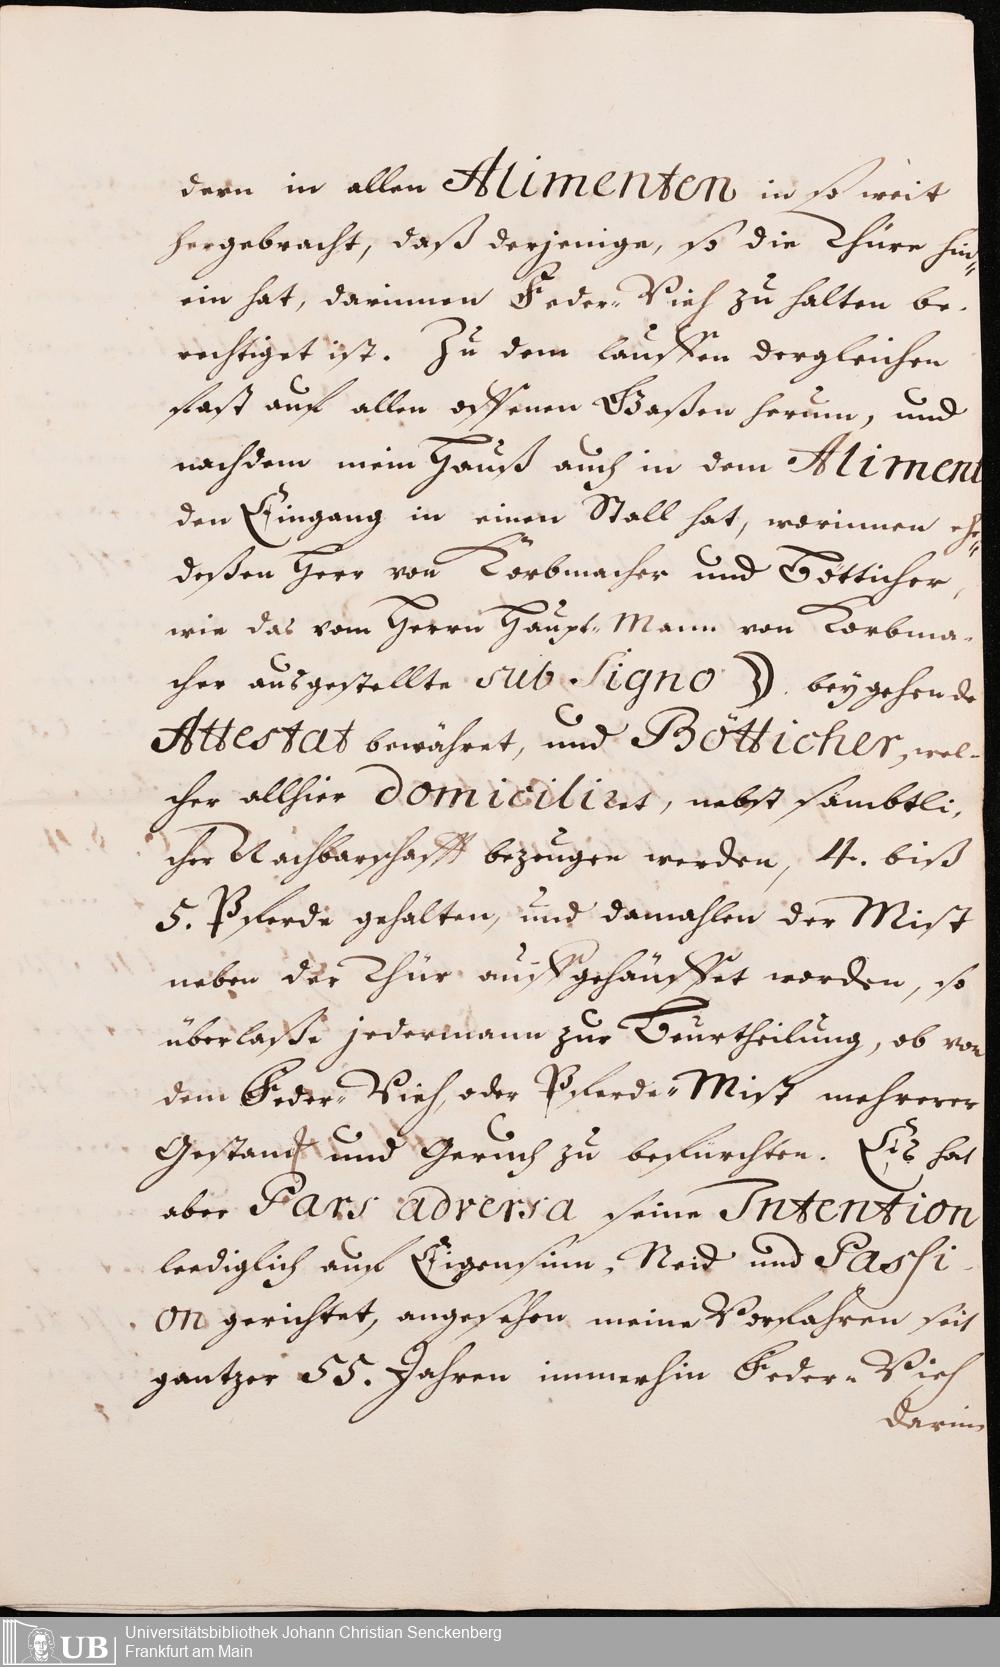 dern in allen Alimenten in so weit
hergebracht, daß derjenige, so die Thüre hin„
ein hat, darinnen Feder„ Vieh zu halten be„
rechtiget ist. Zu dem lauffen dergleichen
fast auf allen offenen Gaßen herum, und
nachdem mein Hauß auch in dem Aliment
den Eingang in einen Stall hat, worinnen ehe„
deßen Herr von Körbmacher und Bötticher,
wie das vom Herrn Haupt„ Mann von Korbma„
cher ausgestellte sub Signo ☽. beygehende
Attestat bewähret, und Bötticher, wel„
cher allhier domiciliret, nebst sämbtli„
cher Nachbarschafft bezeugen werden, 4. biß
5. Pferde gehalten, und damahlen der Mist
neben der Thür auffgehäuffet worden, so
überlaße jedermann zur Beurtheilung, ob von
dem Feder„ Vieh, oder Pferde„ Mist mehrerer
Gestanck und Geruch zu befürchten. Es hat
aber Pars adversa seine Intention
leediglich auf Eigensinn, Neid und Passi„
on gerichtet, angesehen meine Vorfahren seit
gantzer 55. Jahren immerhin Feder„ Vieh
darinn
UB Universitätsbibliothek Johann Christian Senckenberg
Frankfurt am Main